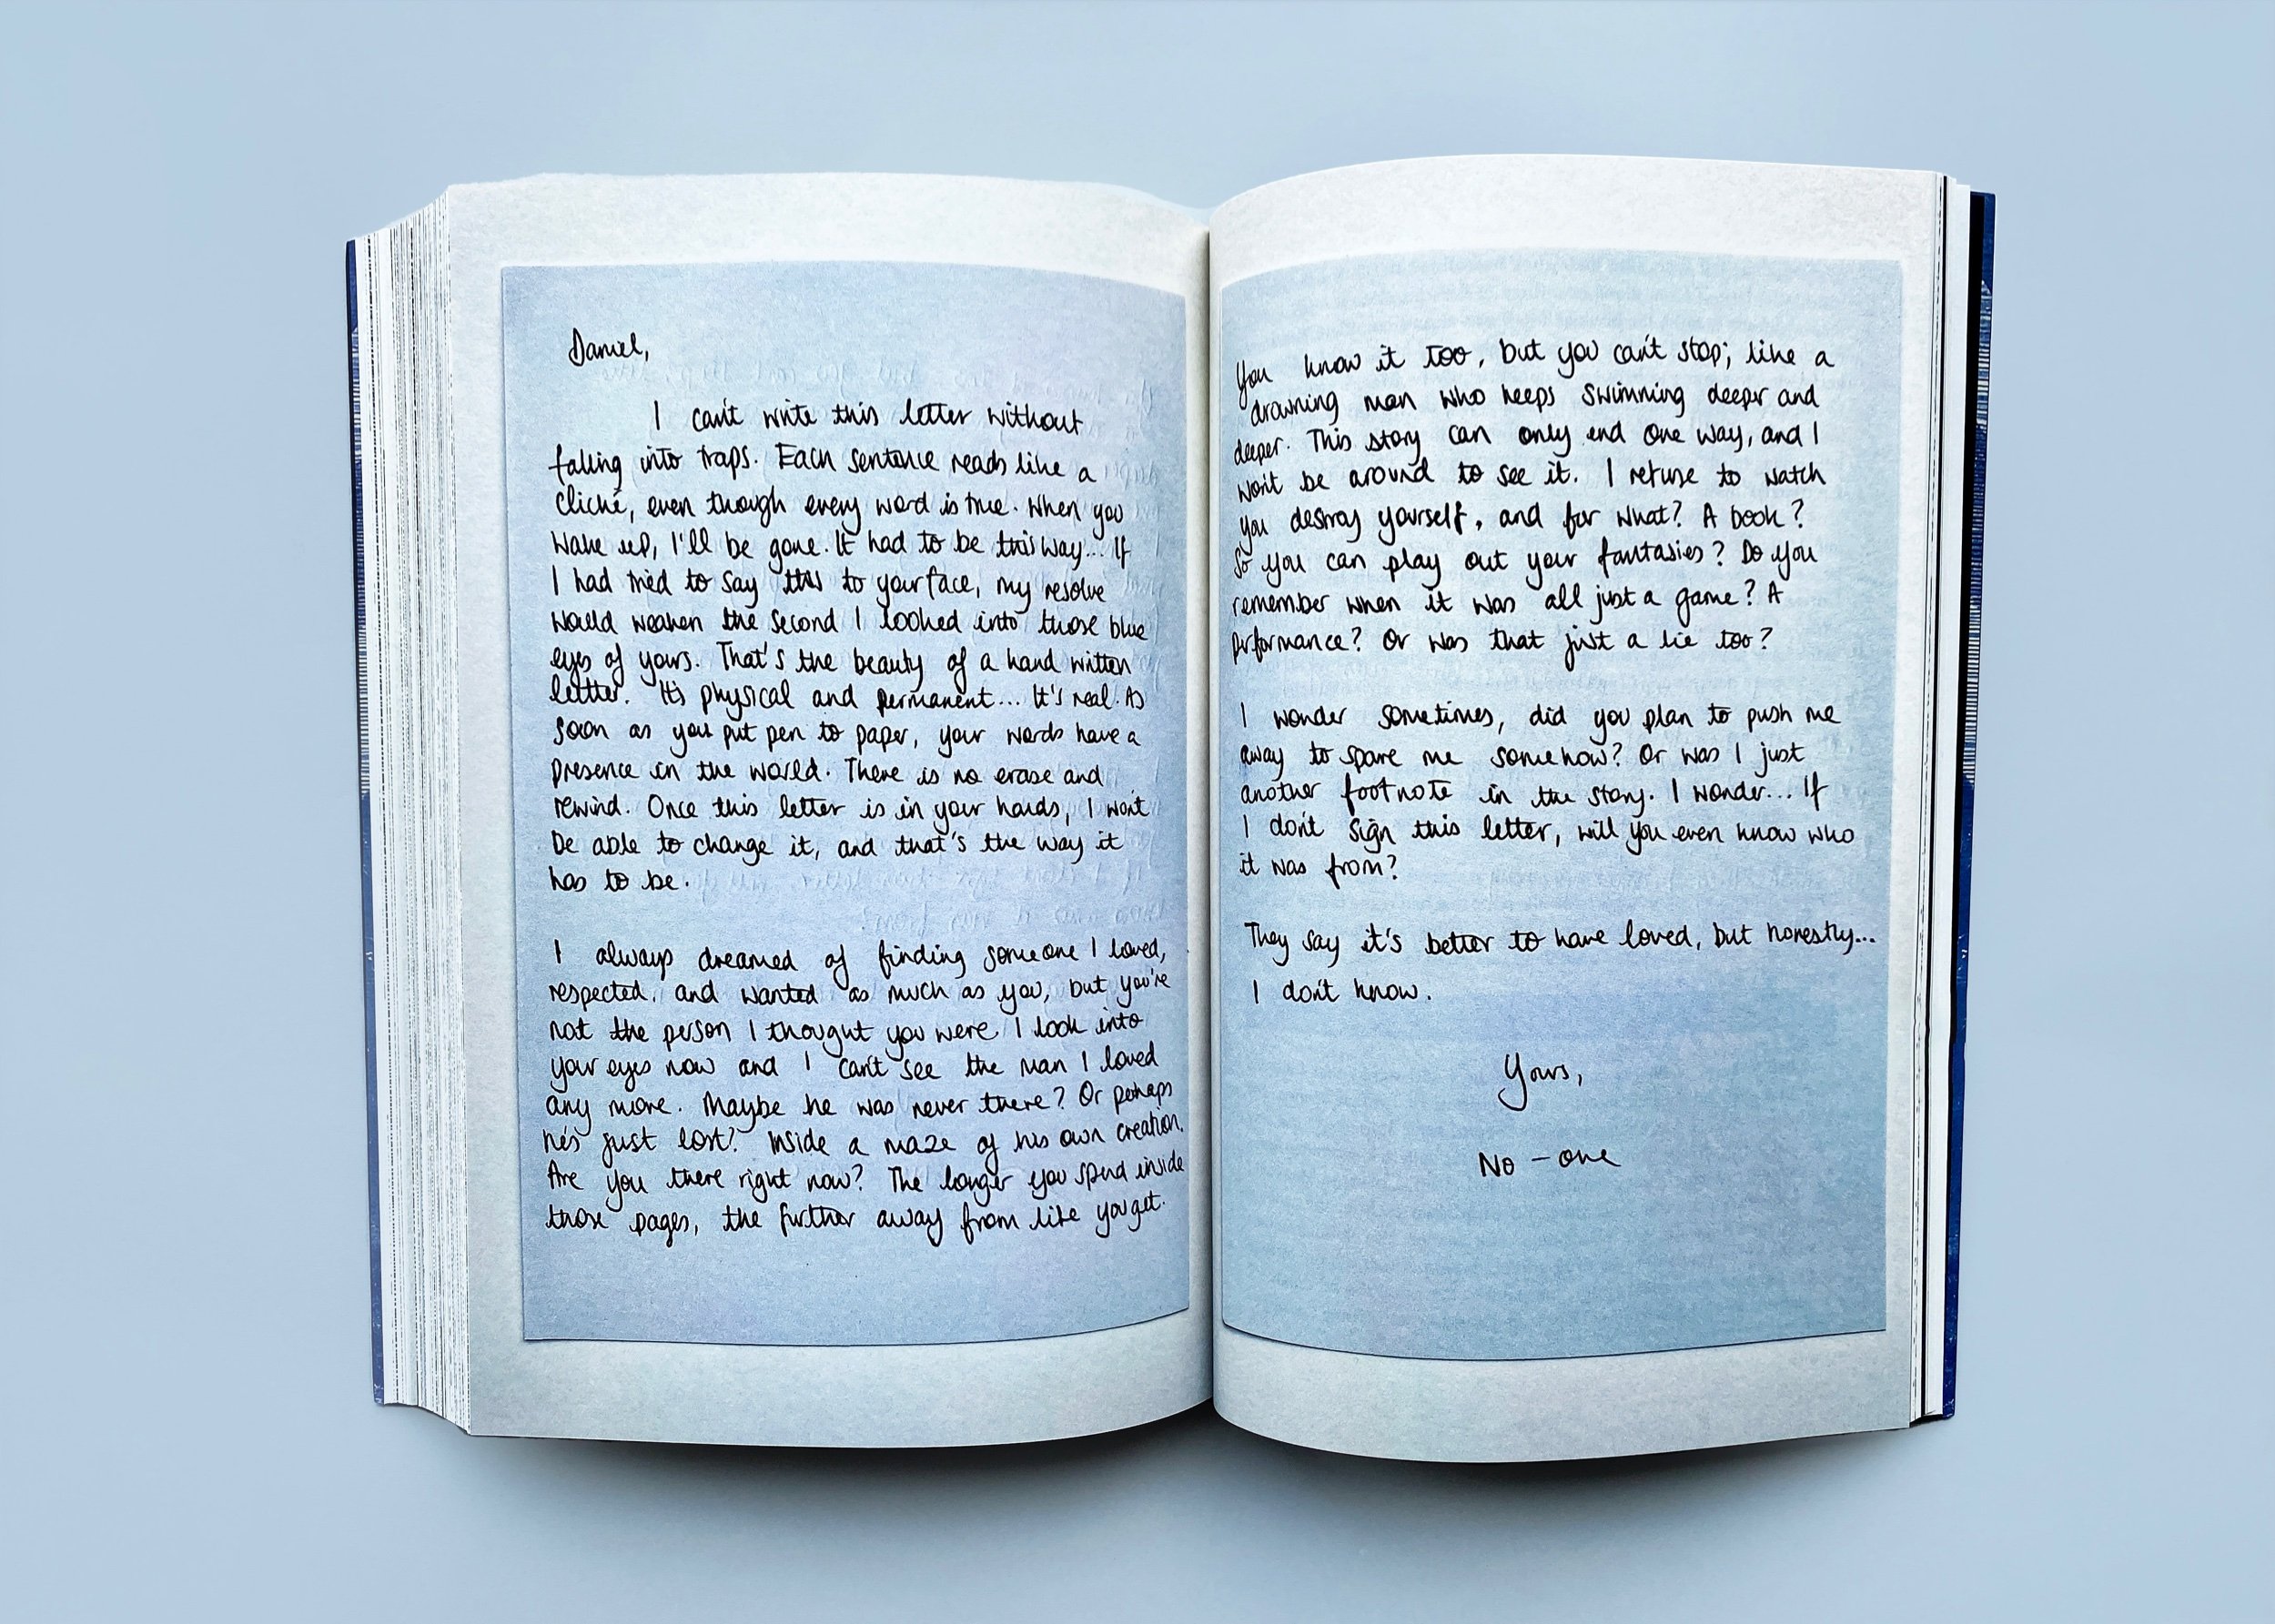 Daniel,
I can't write this letter without
falling into traps. Each sentence reads like a
cliché, even though every word is true. When you
wake up, I'll be gone. It had to be this way... If
I had tried to say this to your face, my resolve
would weaken the second I looked into those blue
eyes of yours. That's the beauty of a hand written
letter. It's physical and permanent... It's real. As
soon as you put pen to paper, your words have a
presence in the world. There is no erase and
rewind. Once this letter is in your hands, I won't
be able to change it, and that's the way it
has to be.
I always dreamed of finding someone I loved,
respected, and wanted as much as you, but you're
not the person I thought you were. I look into
your eyes now and I can't see the man I loved
any more. Maybe he was never there? Or perhaps
he's just lost? Inside a maze of his own creation.
Are you there right now? The longer you spend inside
those pages, the further away from life you get.
You know it too, but you can't stop; like a
drowning man who keeps swimming deeper and
deeper. This story can only end one way, and I
won't be around to see it. I refuse to watch
you destroy yourself, and for what? A book?
So you can play out your fantasies? Do you
remember when it was all just a game? A
performance? Or was that just a lie too?
I wonder sometimes, did you plan to push me
away to spare me somehow? Or was I just
another footnote in the story. I wonder... If
I don't sign this letter, will you even know who
it was from?
They say it's better to have loved, but honestly...
I don't know.
Yours,
No-one